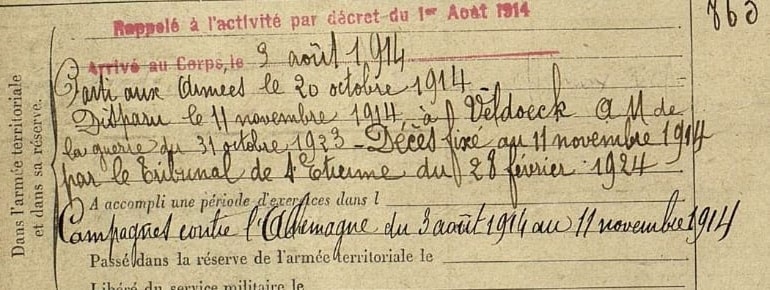 Rappelé à l'activité par décret du 1er Août 1914
863
Arrivé au Corps, le 3 août 1914
Parti aux Armées le 20 octobre 1914
Disparu le 11 novembre 1914 à Veldoeck A M de
la guerre du 31 octobre 1923 - Décès fixé au 11 novembre 1914
par le Tribunal de St Etienne du 28 février 1924
A accompli une période d'exercices dans l
Campagnes contre l'Allemagne du 3 août 1914 au 11 novembre 1914
Passé dans la réserve de l'armée territoriale le
Libéré du service militaire le
Dans l'armée territoriale
et dans sa réserve.